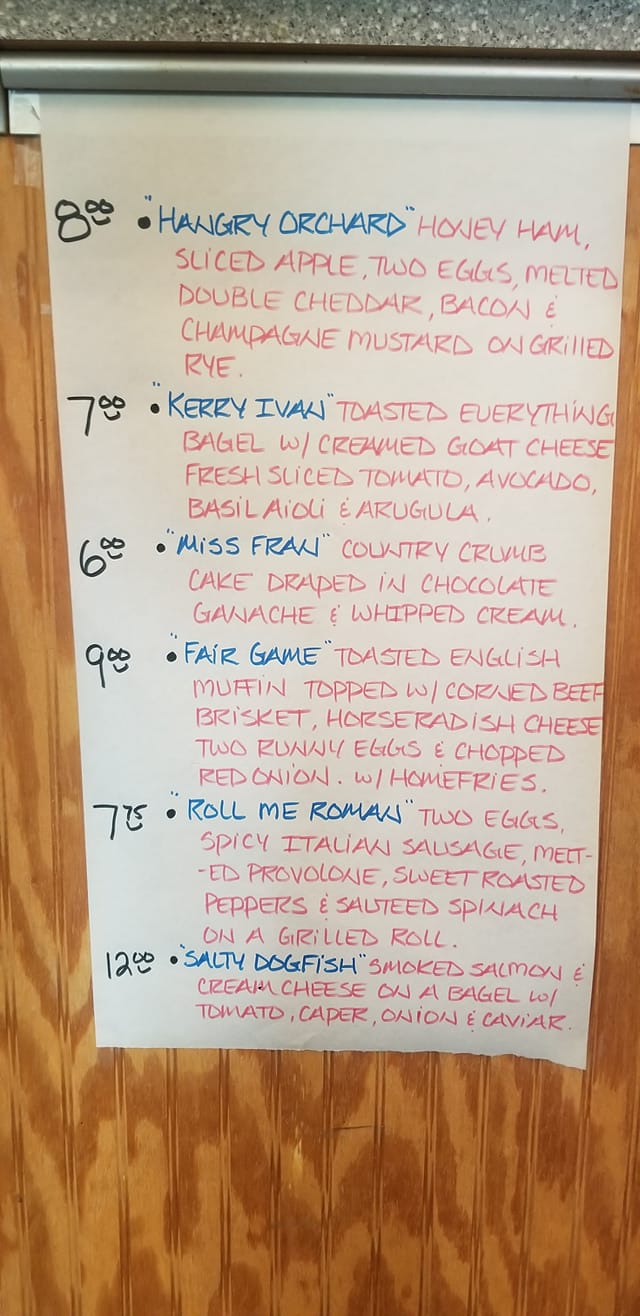 8⁰⁰ • "HANGRY ORCHARD" HONEY HAM,
SLICED APPLE, TWO EGGS, MELTED
DOUBLE CHEDDAR, BACON &
CHAMPAGNE MUSTARD ON GRILLED
RYE.
7⁰⁰ • "KERRY IVAN" TOASTED EVERYTHING
BAGEL W/ CREAMED GOAT CHEESE
FRESH SLICED TOMATO, AVOCADO,
BASIL AIOLI & ARUGULA.
6⁰⁰ • "MISS FRAN" COUNTRY CRUMB
CAKE DRAPED IN CHOCOLATE
GANACHE & WHIPPED CREAM.
9⁰⁰ • "FAIR GAME" TOASTED ENGLISH
MUFFIN TOPPED W/ CORNED BEEF
BRISKET, HORSERADISH CHEESE
TWO RUNNY EGGS & CHOPPED
RED ONION. W/ HOMEFRIES.
7⁷⁵ • "ROLL ME ROMAN" TWO EGGS,
SPICY ITALIAN SAUSAGE, MELT-
-ED PROVOLONE, SWEET ROASTED
PEPPERS & SAUTEED SPINACH
ON A GRILLED ROLL.
12⁰⁰ • "SALTY DOGFISH" SMOKED SALMON &
CREAM CHEESE ON A BAGEL W/
TOMATO, CAPER, ONION & CAVIAR.